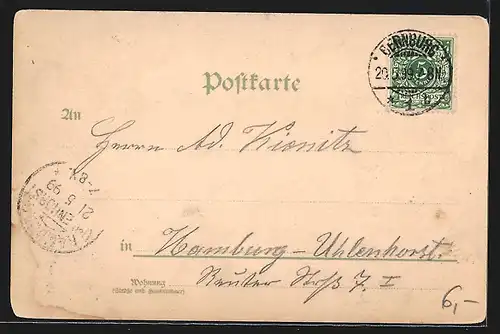 BERNBURG
20.5.99. 8N.
* 1 b
5
Postkarte
An
Herrn Ad. Kienitz
7-8V.
21 5 99
in Hamburg-Uhlenhorst.
Wohnung
(Straße und Hausnummer)
6,-